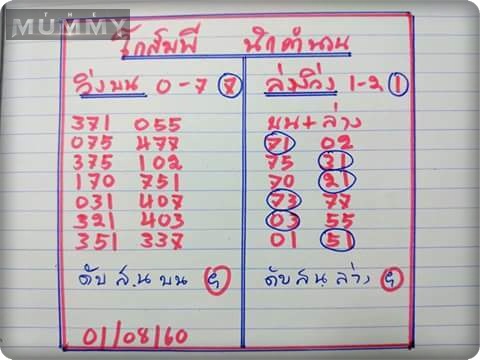 THE
MUMMY
นักคำนวน
วิ่งบน 0-7 7
371 055
075 477
375 102
170 751
031 407
321 403
351 337
ดับ ส.น บน 9
01/08/60
ล่างวิ่ง 1-2 1
บน+ล่าง
71 02
75 31
70 21
73 77
03 55
01 51
ดับ ส.น ล่าง 9